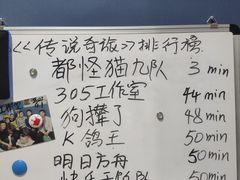 《传说奇旅》排行榜
都怪猫九队 3 min
305工作室 44 min
狗撵了 48 min
K鸽王 50 min
明日方舟 50 min